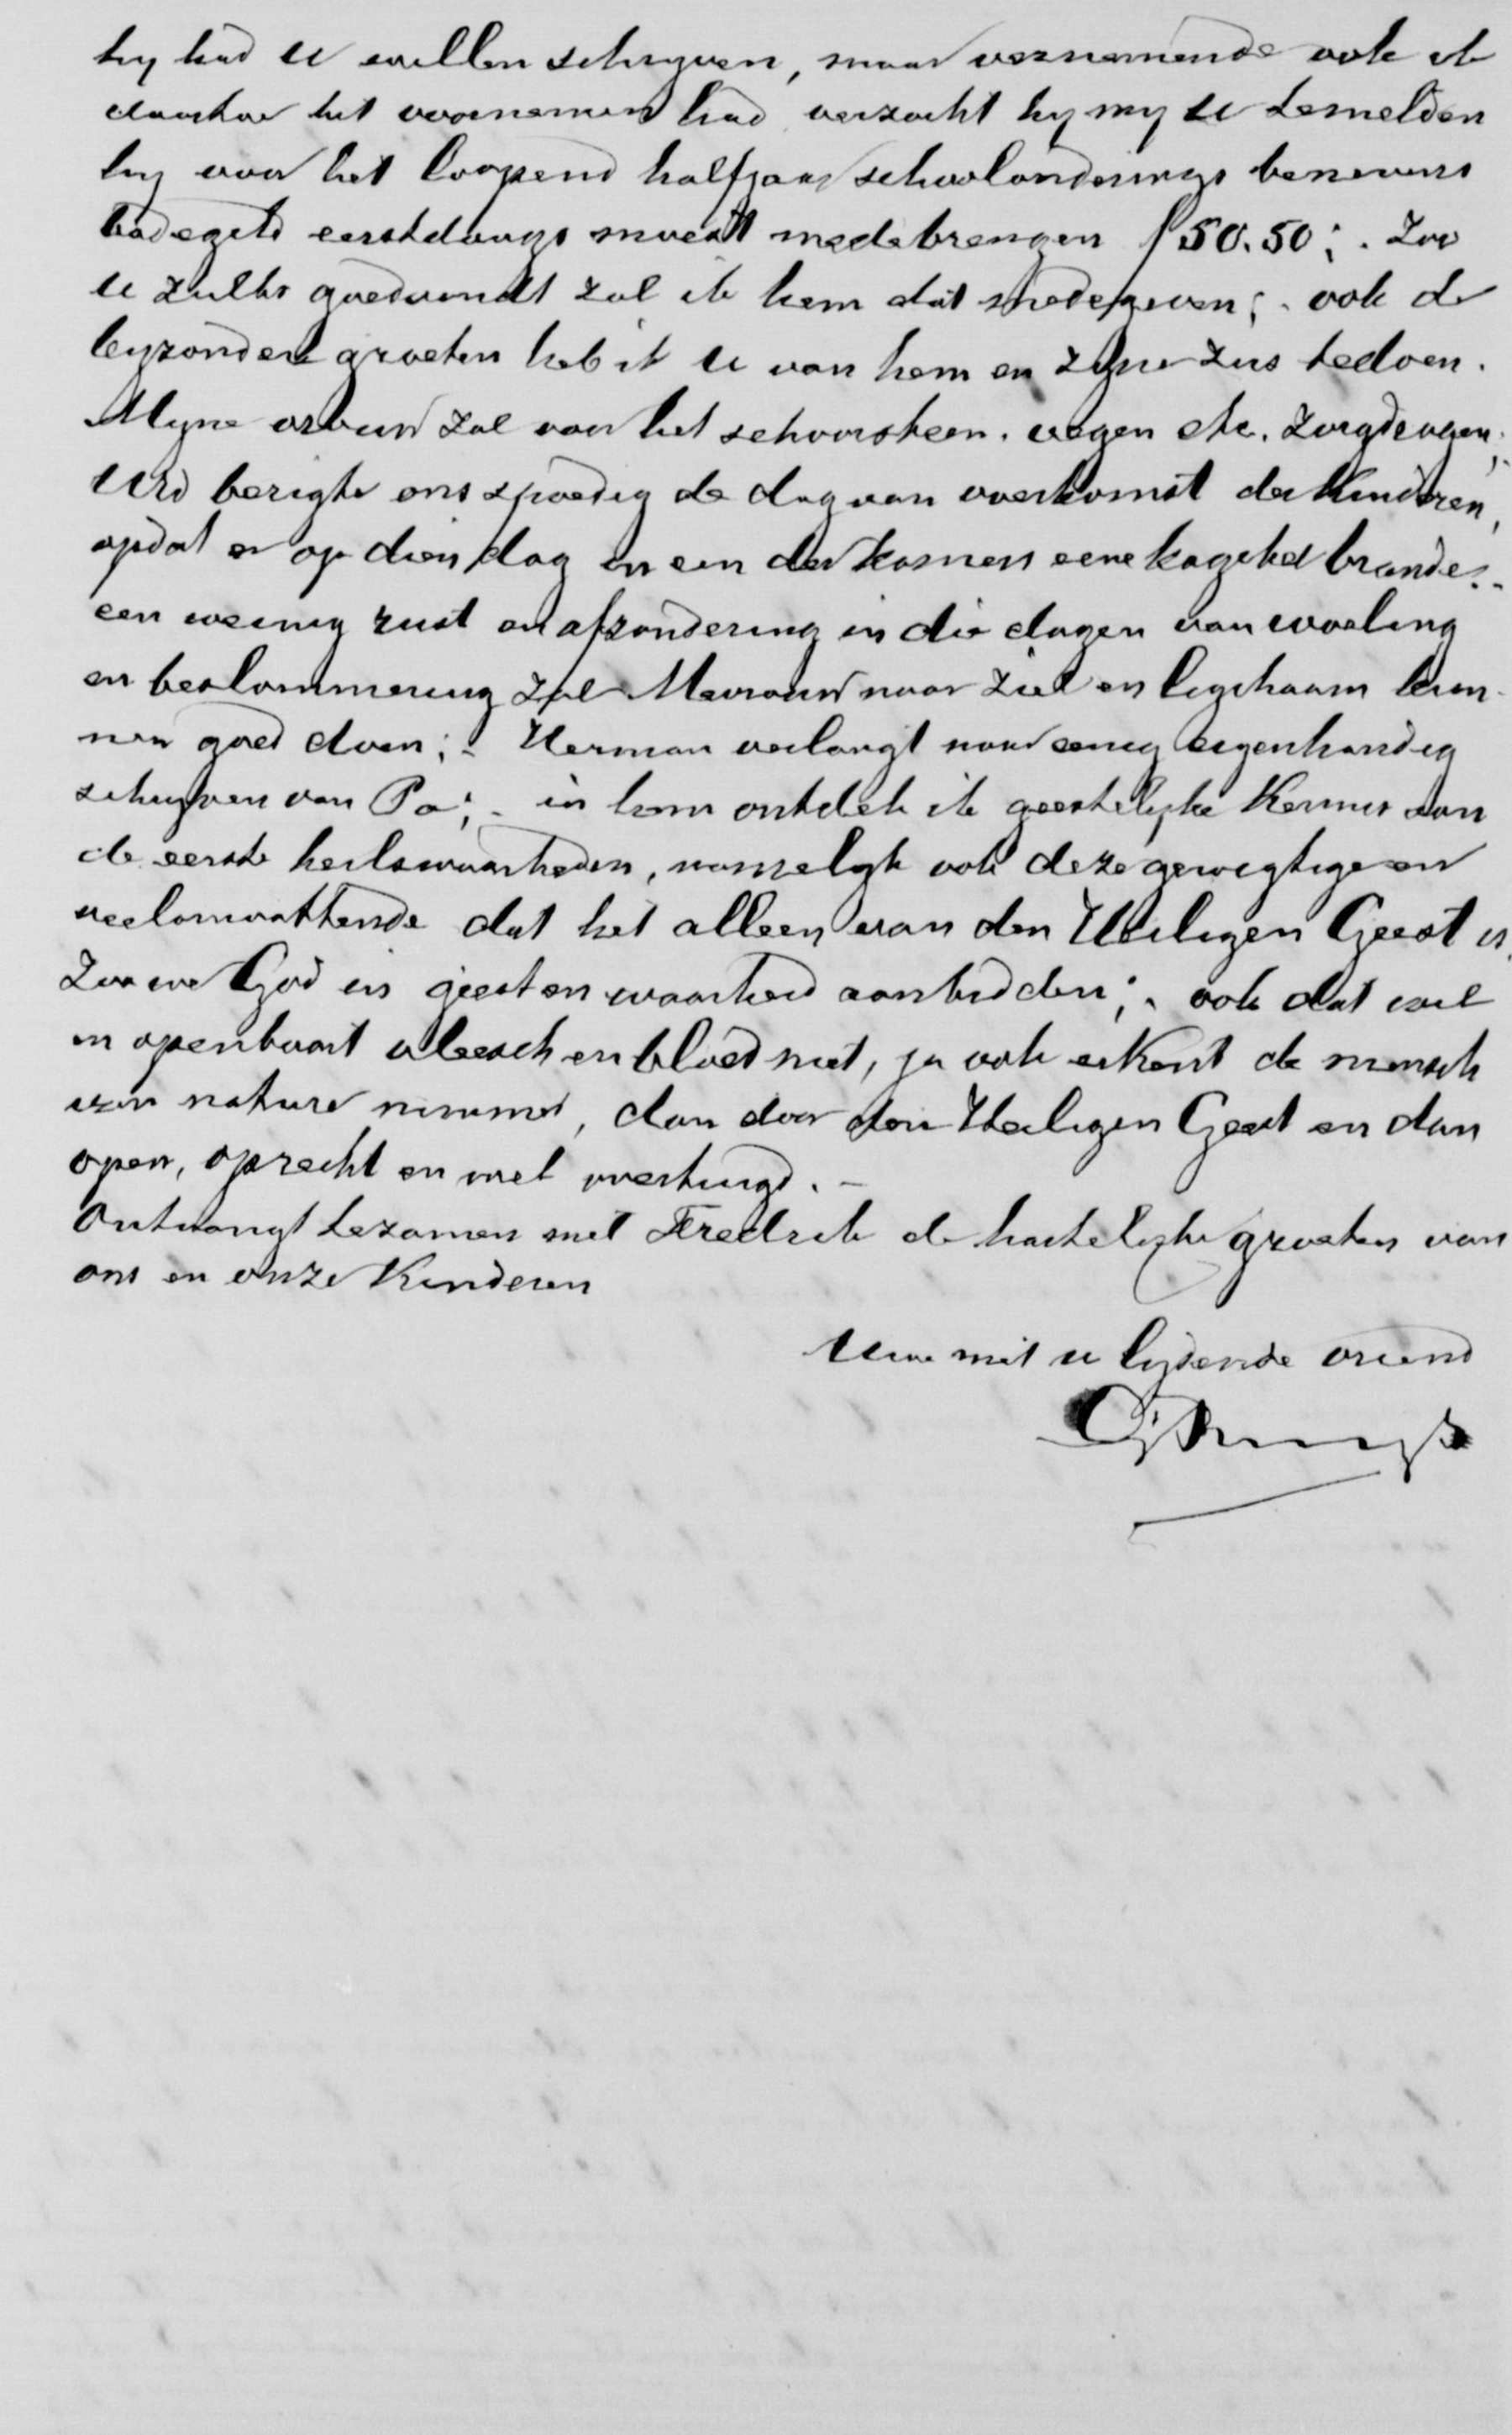 hy had U willen schryven, maar vernemende ook ik
daartoe het voornemen had verzocht hy my U te melden
hy voor het loopend halfjaar schoolonderwys benevens
badegeld eerstdaags moest medebrengen ƒ50.50;. Zoo
U zulks goedvindt zal ik hem dat medegeven;. ook de
byzondere groeten heb ik U van hem en zyne zus te doen.
Myne vrouw zal voor het schoorsteen. vegen etc. zorgdragen;
UEd berigte ons spoedig de dag van overkomst der Kinderen,
opdat er op dien dag in een der kamers eene kagchel brande;.
een weinig rust en afzondering in die dagen van woeling
en beslommering zal Mevrouw naar ziel en ligchaam kun-
nen goed doen;. Herman verlangt naar eenig eigenhandig
schryven van Pa;. in hem ontdek ik geestelyke Kennis van
de eerste heilswaarheden, namelyk ook deze gewigtige en
veelomvattende dat het alleen van den Heiligen Geest is
Zoo we God in geest en waarheid aanbidden;. ook dat wel
en openbaart vleesch en bloed niet, ja ook erkent de mensch
van nature nimmer, dan door den Heiligen Geest en dan
open, oprecht en wel overtuigd. -
Ontvangt tezamen met Fredrik de hartelyke groeten van
ons en onze Kinderen
Uwe met u lydende vriend